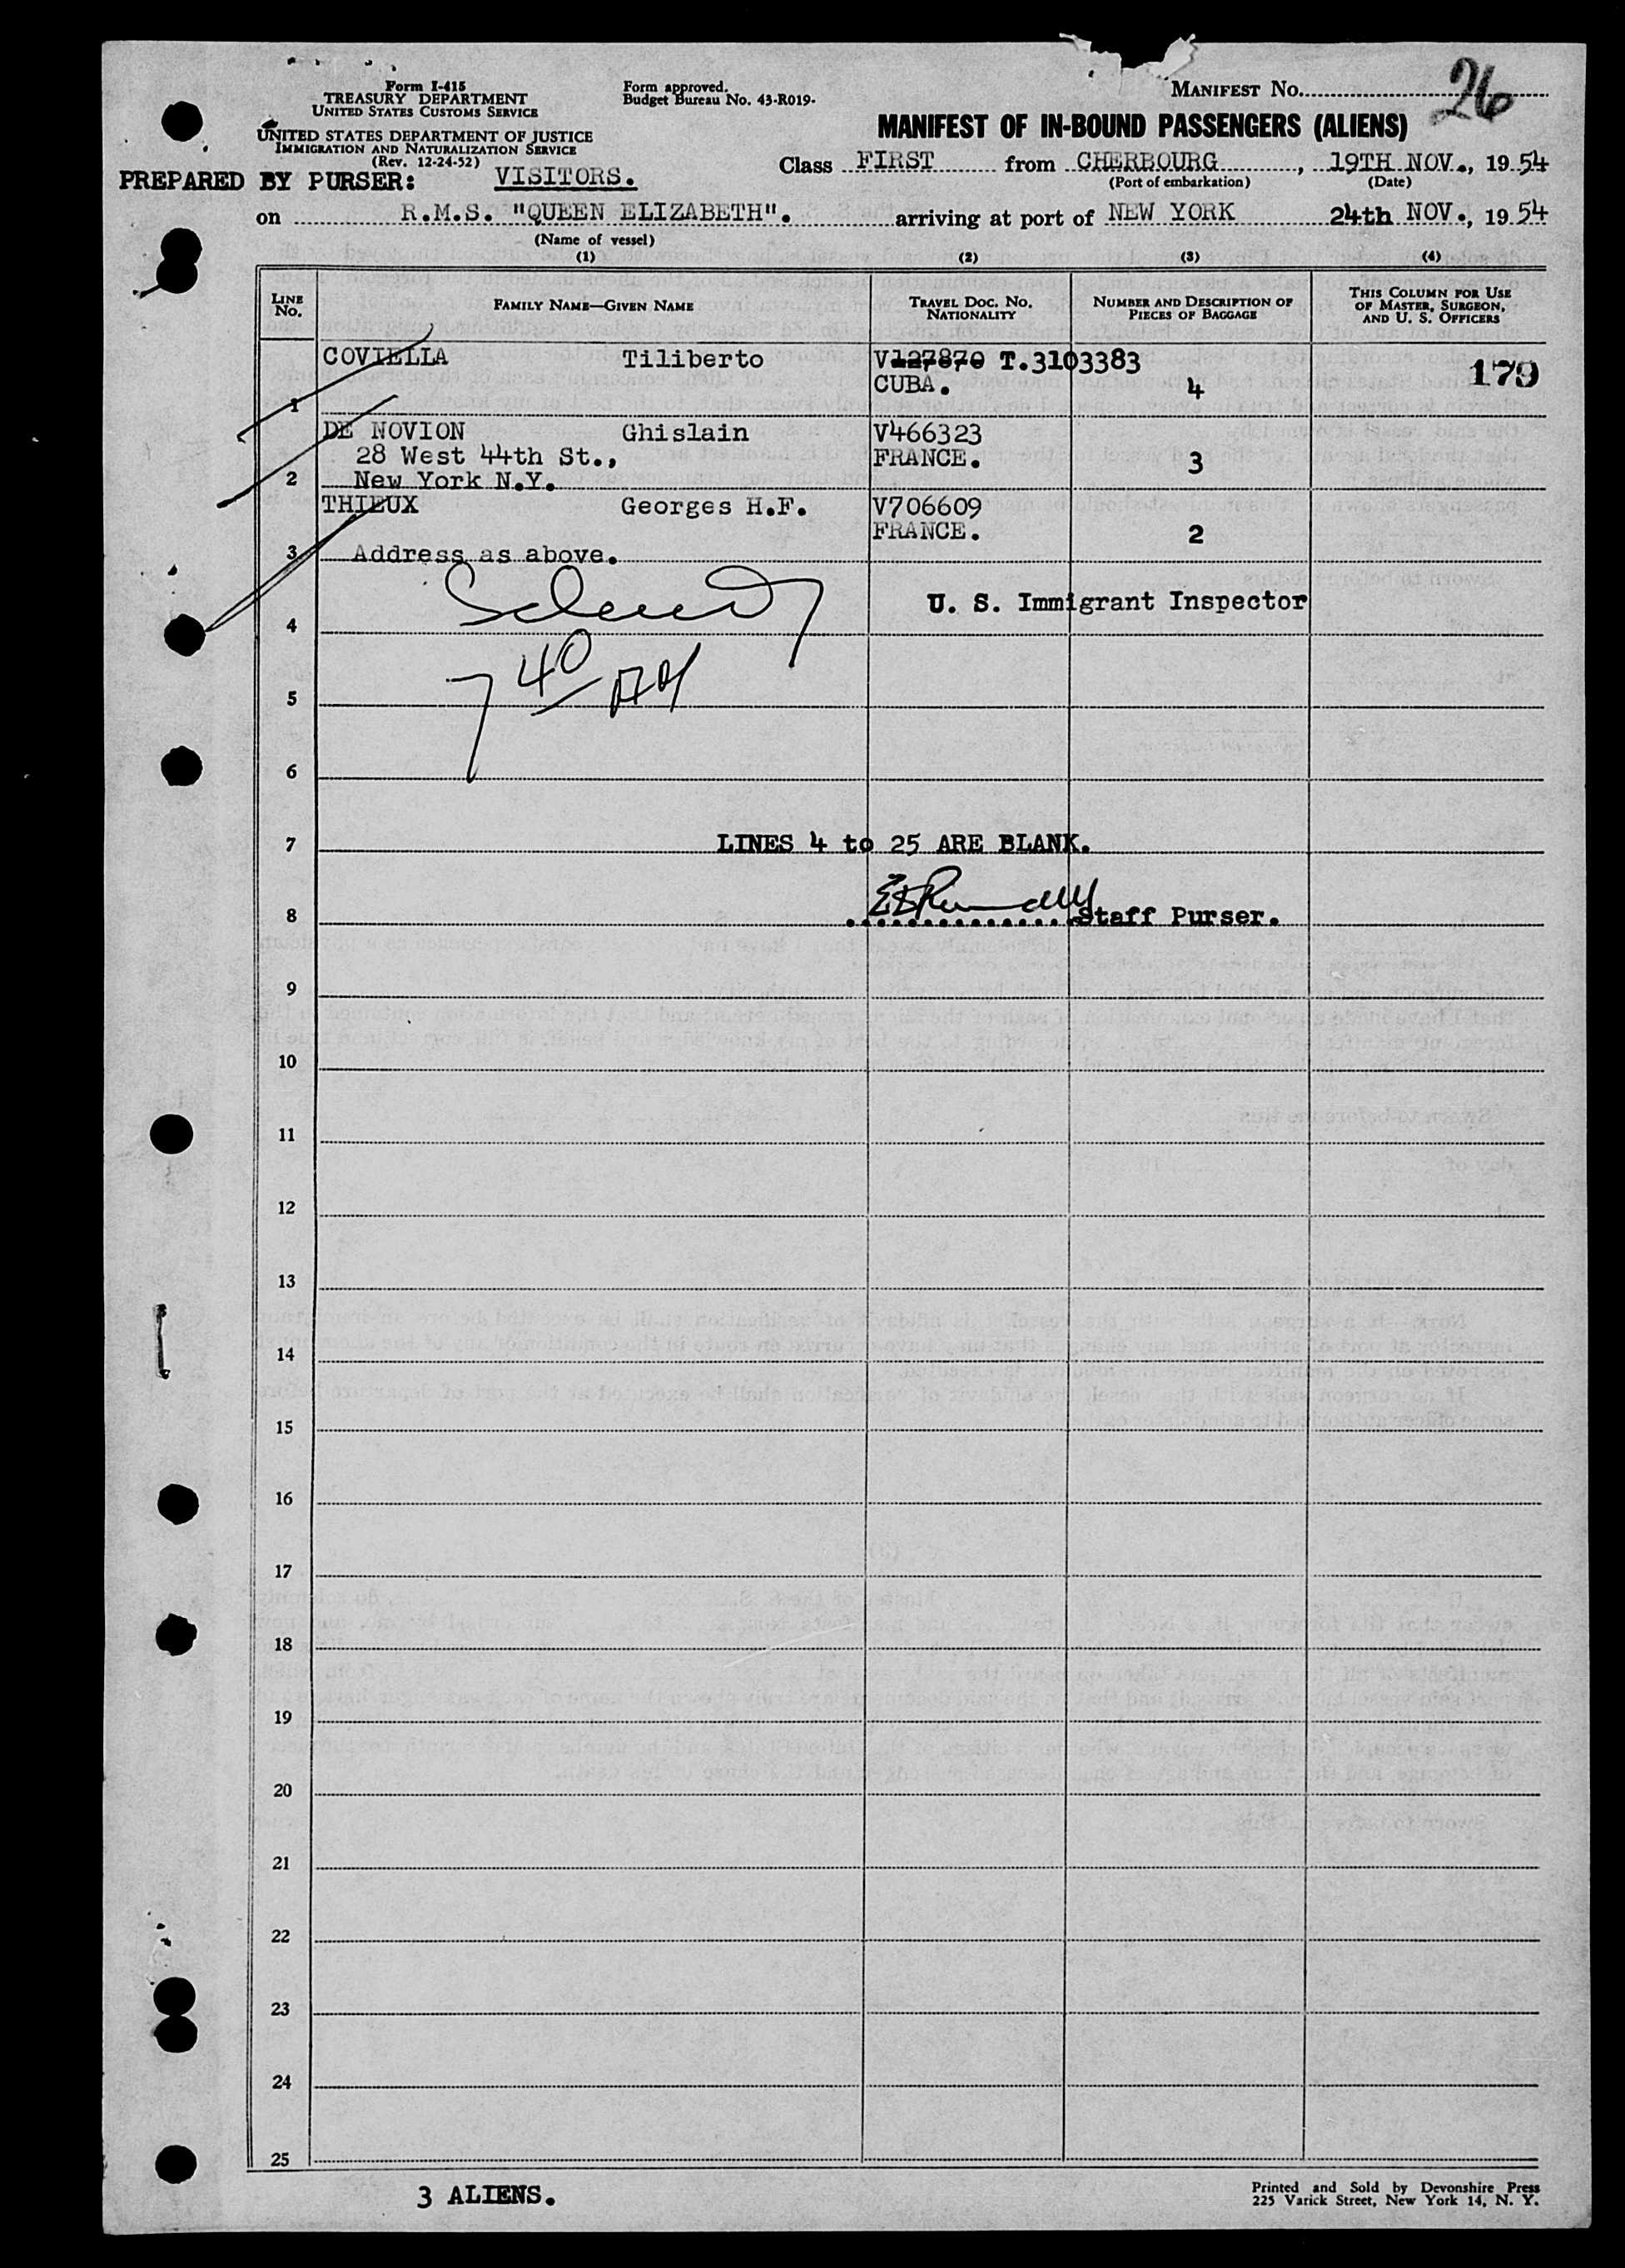 Form I-415
TREASURY DEPARTMENT
UNITED STATES CUSTOMS SERVICE
UNITED STATES DEPARTMENT OF JUSTICE
IMMIGRATION AND NATURALIZATION SERVICE
(Rev. 12-24-52)
Form approved.
Budget Bureau No. 43-R019.
MANIFEST NO. 26
MANIFEST OF IN-BOUND PASSENGERS (ALIENS)
Class FIRST from CHERBOURG, 19TH NOV., 1954
(Port of embarkation) (Date)
PREPARED BY PURSER: VISITORS.
on R.M.S. "QUEEN ELIZABETH". arriving at port of NEW YORK 24th NOV., 1954
(Name of vessel)
(1) (2) (3) (4)
LINE No. FAMILY NAME—GIVEN NAME TRAVEL DOC. NO. NATIONALITY NUMBER AND DESCRIPTION OF PIECES OF BAGGAGE THIS COLUMN FOR USE OF MASTER, SURGEON, AND U. S. OFFICERS
COVIELLA Tiliberto V127870 T.3103383 179
1 CUBA. 4
DE NOVION Ghislain V466323
28 West 44th St., FRANCE. 3
2 New York N.Y.
THIEUX Georges H.F. V706609
FRANCE. 2
3 Address as above.
U. S. Immigrant Inspector
4
7 40
5
6
7 LINES 4 to 25 ARE BLANK.
8 Staff Purser.
9
10
11
12
13
14
15
16
17
18
19
20
21
22
23
24
25
3 ALIENS.
Printed and Sold by Devonshire Press
225 Varick Street, New York 14, N. Y.